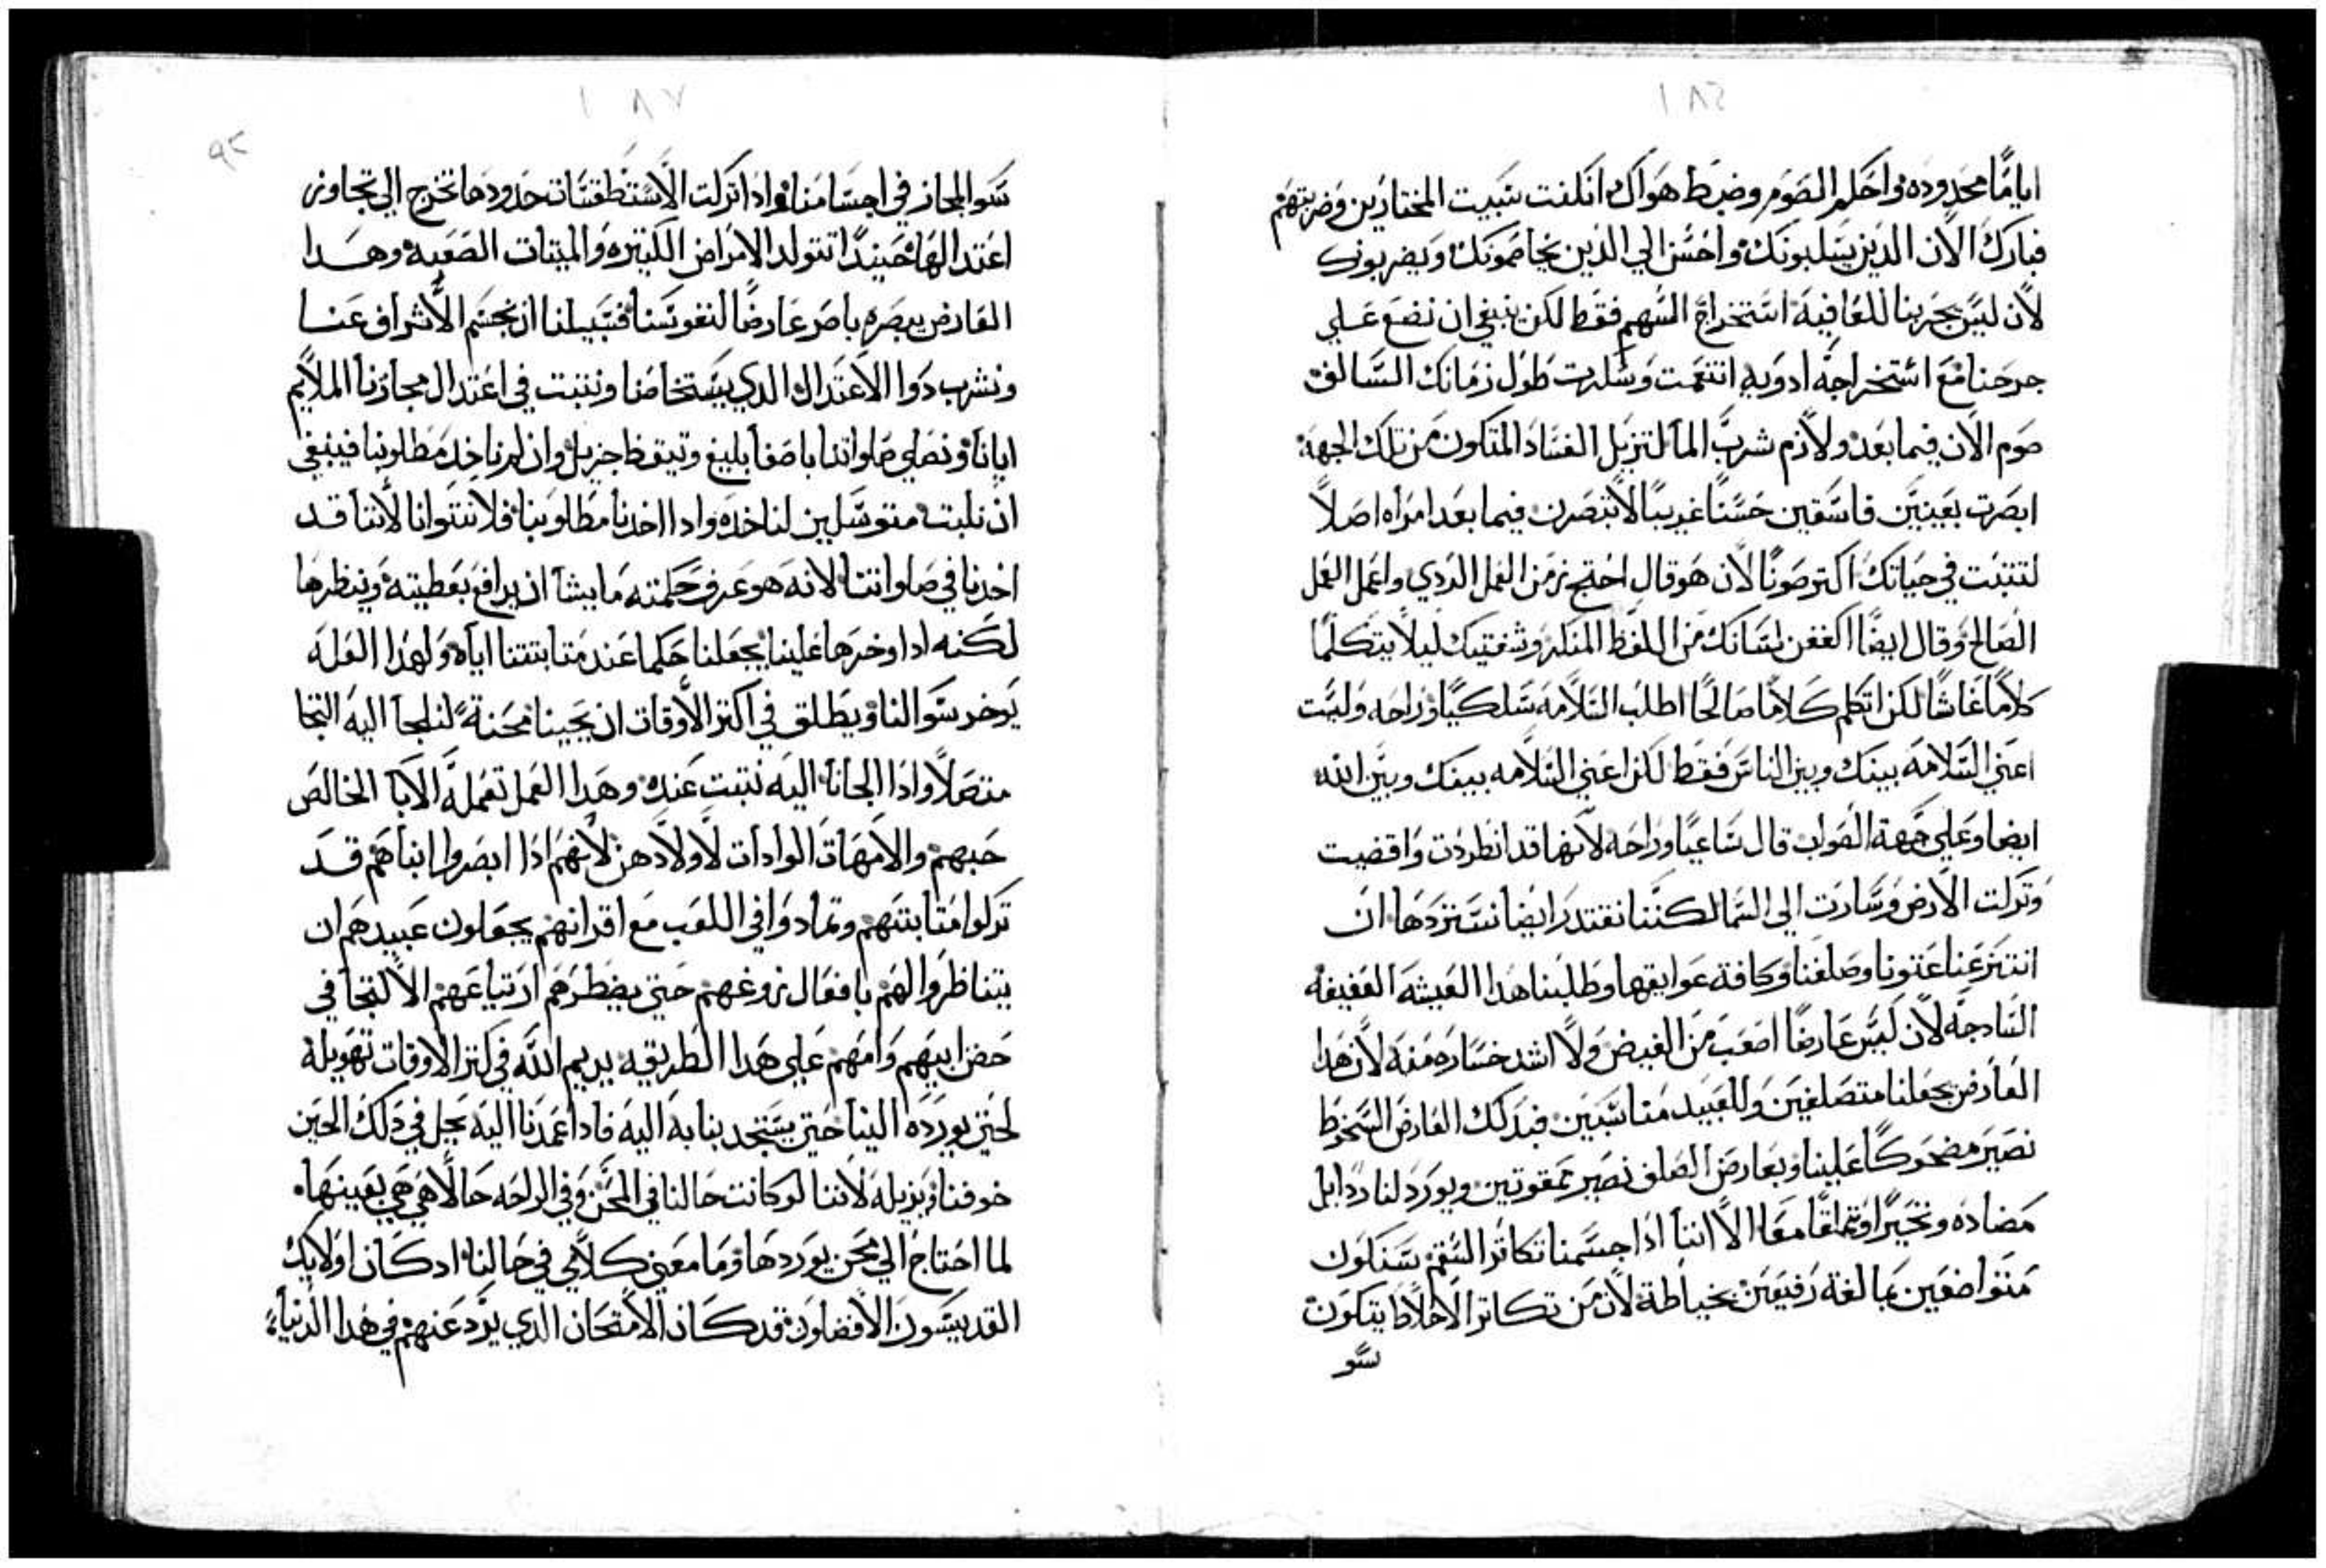 ١٨٦
ايامًا محدوده واحكم الصوم وضبط هواك انكلفت سبيت المختارين وضربتهم
فبارك الان الدين يسلبونك واحسن الي الدين يخاصمونك ويضربونك
لان ليس يجربنا للعافية استخراج السهم فقط لكن ينبغي ان نضع علي
جرحنا مع استخراجه ادويه انتعمت وسكرت طول زمانك السالف
صوم الان فيما بعد ولازم شرب الما لتزيل الفساد المتكون من تلك الجهه
ابصرت بعينين فاسقين حسنًا غريبًا لا تبصرن فيما بعد امراه اصلاً
لتتبت في حياتك اكتر صونًا لان هو قال احتجز من العمل الردي واعمل العمل
الصالح وقال ايضًا اكففن لسانك من اللفظ المنكر وشفتيك ليلا يتكلما
كلامًا غاشًا لكن اتكلم كلامًا صالحًا اطلب السلامه سلكيًا وراحه وليست
اعني السلامه بينك وبين الناس فقط لكن اعني السلامه بينك وبين الله
ايضا وعلي جهة الصواب قال ساعيًا وراحه لانها قد انطردت واقضيت
وتركت الارض وسارت الي السما لكننا نقتدر ايضا نستنردها ان
انتنزعنا عتونا وصلفنا وكافة عوايقها وطلبنا هدا العيشه العفيفه
السادجه لان ليس عارضًا اصعب من الغيض ولا اشد خساره منه لان هدا
العارض يجعلنا متصلفين وللعبيد مناسبين فبدلك العارض السخوط
نصير مضحوكًا علينا وبعارض الصلف نصير ممقوتين ويورد لنا ردايل
مضاده وتخيرًا وتملقًا معًا الا اننا ادا جسمنا تكاتر السقم سنكون
متواضعين بمبالغة رفيعين بخياطة لان من تكاتر الاخلاط يتكون
سو
١٨٧
٩٣
سو المجاز في اجسامنا وادا تركت الاستطقسات حدودها تخرج الي تجاوز
اعتدالها حينيدًا تتولد الامراض الكتيره والميتات الصعبه وهدا
العارض يبصره باصر عارضًا لنفوسنا فسبيلنا ان نجسم الاشراف عنا
ونشرب دوا الاعتدال الدي يستخاصنا ونتبت في اعتدال مجازنا الملايم
ايانا ونصلي صلواتنا باصغا بليغ وتيقظ جزيل وان لم ناخد مطلوبنا فينبغي
ان نلبت متوسلين لناخده وادا اخدنا مطلوبنا فلا نتوانا لاننا قد
اخدنا في صلواتنا لانه هو عرف حكمته ما يشا ان يرافع بعطيته وينظرها
لكنه ادا وخرها علينا يجعلنا حكما عند متابتتنا اياه ولهدا العله
يوخر سوالنا ويطلق في اكتر الاوقات ان يجينا محنة لنلجا اليه التجا
متصلاً وادا الجانا اليه نتبت عنده وهدا العمل تعمله الابا الخالص
حبهم والامهات الوادات لاولادهن لانهم ادا ابصروا ابناهم قد
تركوا متابتتهم وتمادوا في اللعب مع اقرانهم يجعلون عبيدهم ان
يتناظروا لهم بافعال تروعهم حتي يضطرهم ارتياعهم الالتجا في
حضن ابيهم وامهم علي هدا الطريقه يديم الله في اكتر الاوقات تهويلة
لحتي يورده الينا حتي يستجدبنا به اليه فادا عمدنا اليه يحل في دلك الحين
خوفنا ويزيله لاننا لو كانت حالنا في المحن وفي الراحه حالًا هي هي بعينها
لما احتاج الي محن يوردها وما معني كلامي في حالنا اد كان اولايك
القديسون الافضلون قد كان الامتحان الدي يرد عنهم في هدا الدنيا